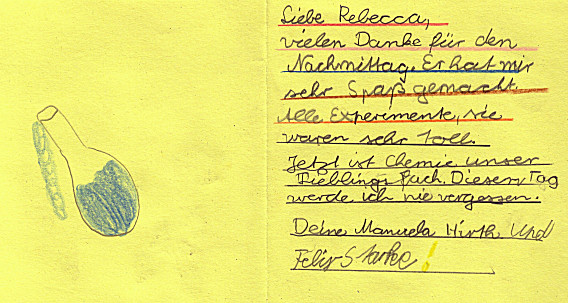 Liebe Rebecca,
vielen Danke für den
Nachmittag. Er hat mir
sehr Spaß gemacht.
Alle Experimente, sie
waren sehr toll.
Jetzt ist Chemie unser
Lieblings Fach. Dieser Tag
werde ich nie vergessen.
Deine Manuela Hirth Und
Felix Starke!